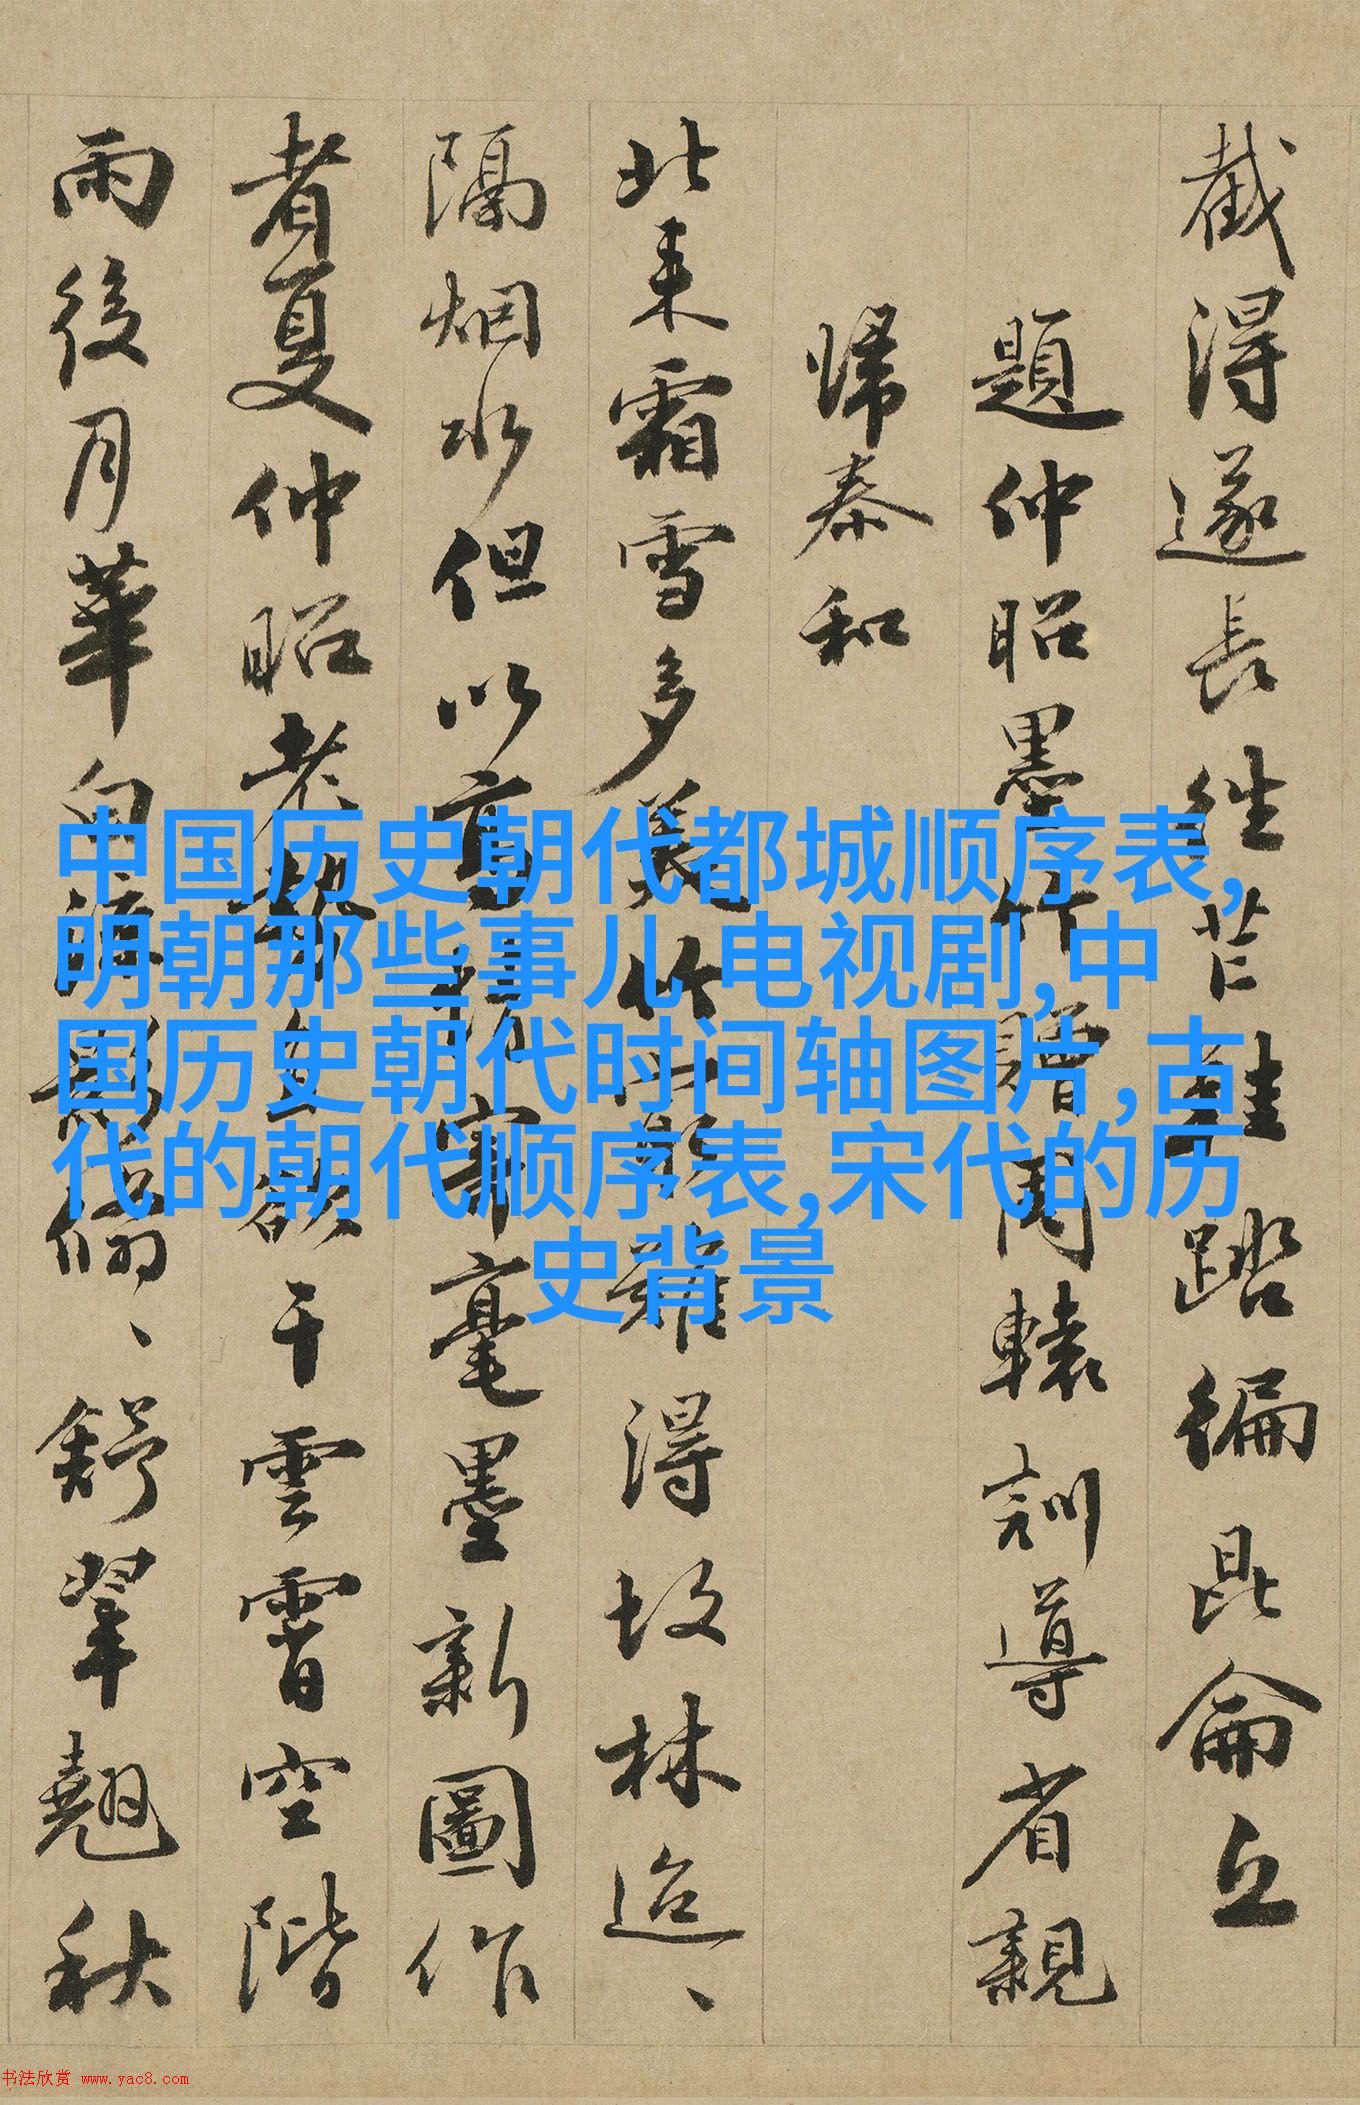 截得遂長往芒鞋踏徧昆侖丘
題仲昭墨竹贈周轅訓導省親
歸泰和
北来霜雪多美竹那難得故林迢、
隔烟水但以高 寄毫墨新圖作
者夏仲昭老 欲干雲霄空階
雨後月華白 影脩、舒翠翹秋
中国历史朝代都城顺序表,
明朝那些事儿 电视剧,中
国历史朝代时间轴图片,古
代的朝代顺序表,宋代的历
史背景
书法欣赏 www.yac8.com